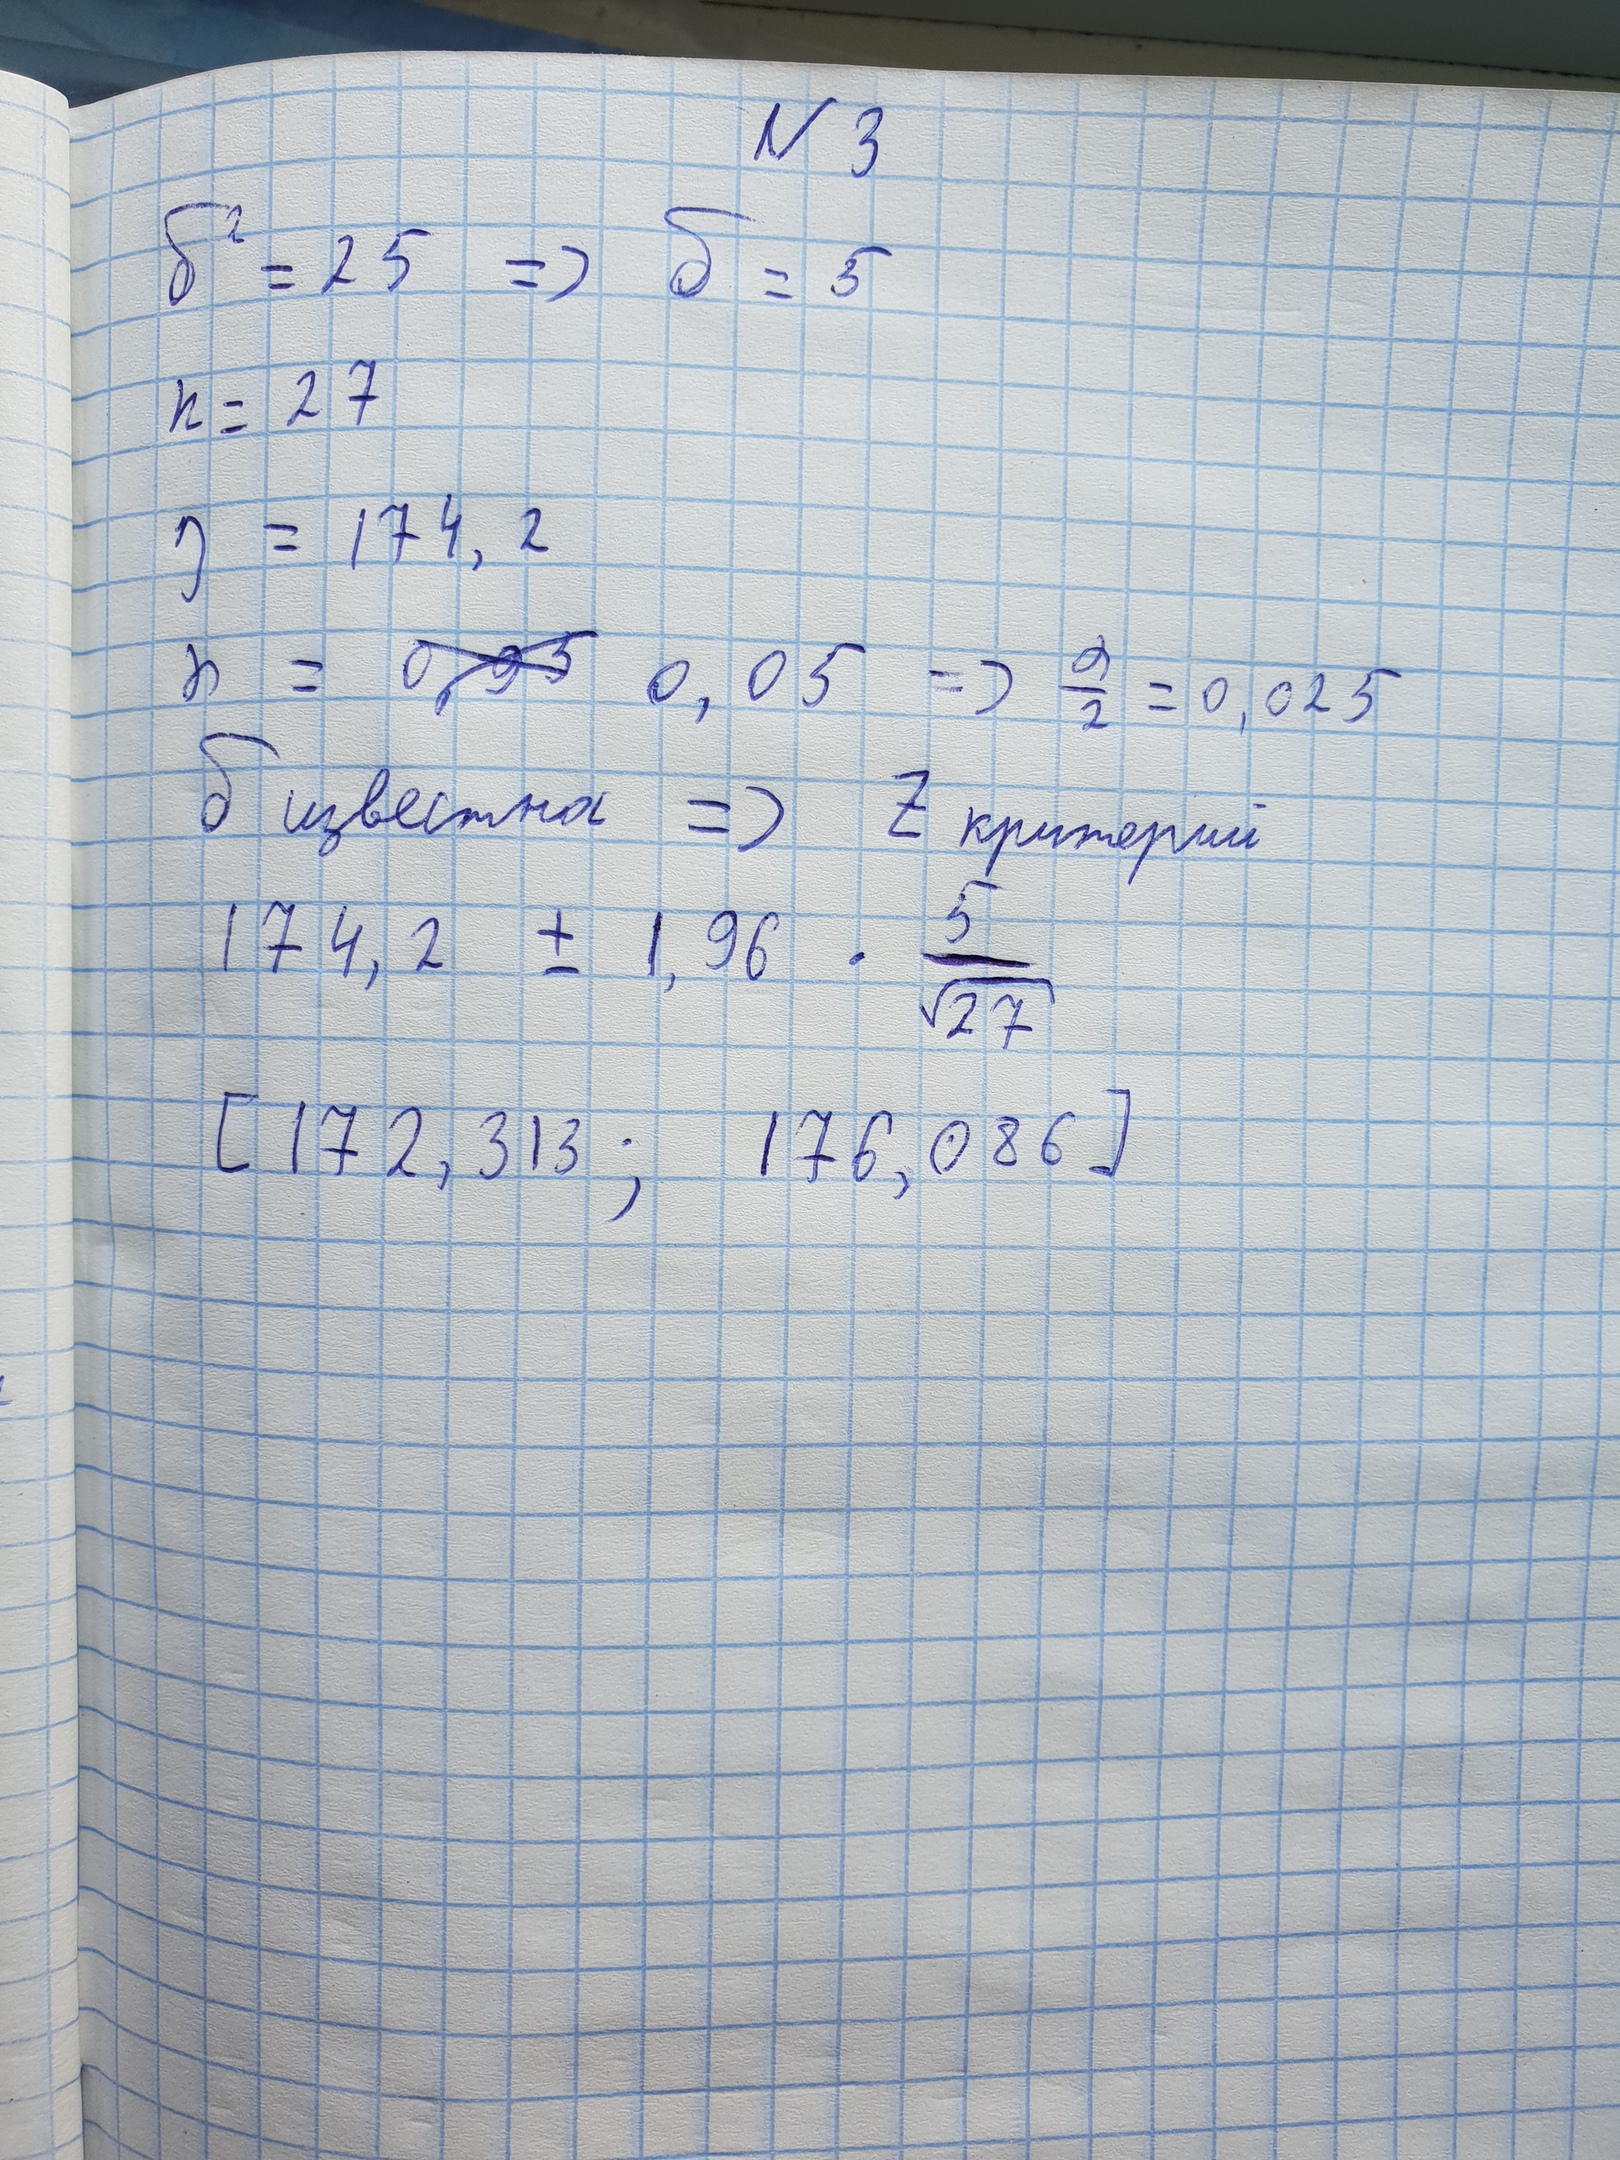 N 3
б² = 25 => б = 5
n = 27
= 174,2
= 0,95 0,05 => /2 = 0,025
б известна => Z критерий
174,2 ± 1,96 · 5/√27
[172,313; 176,086]